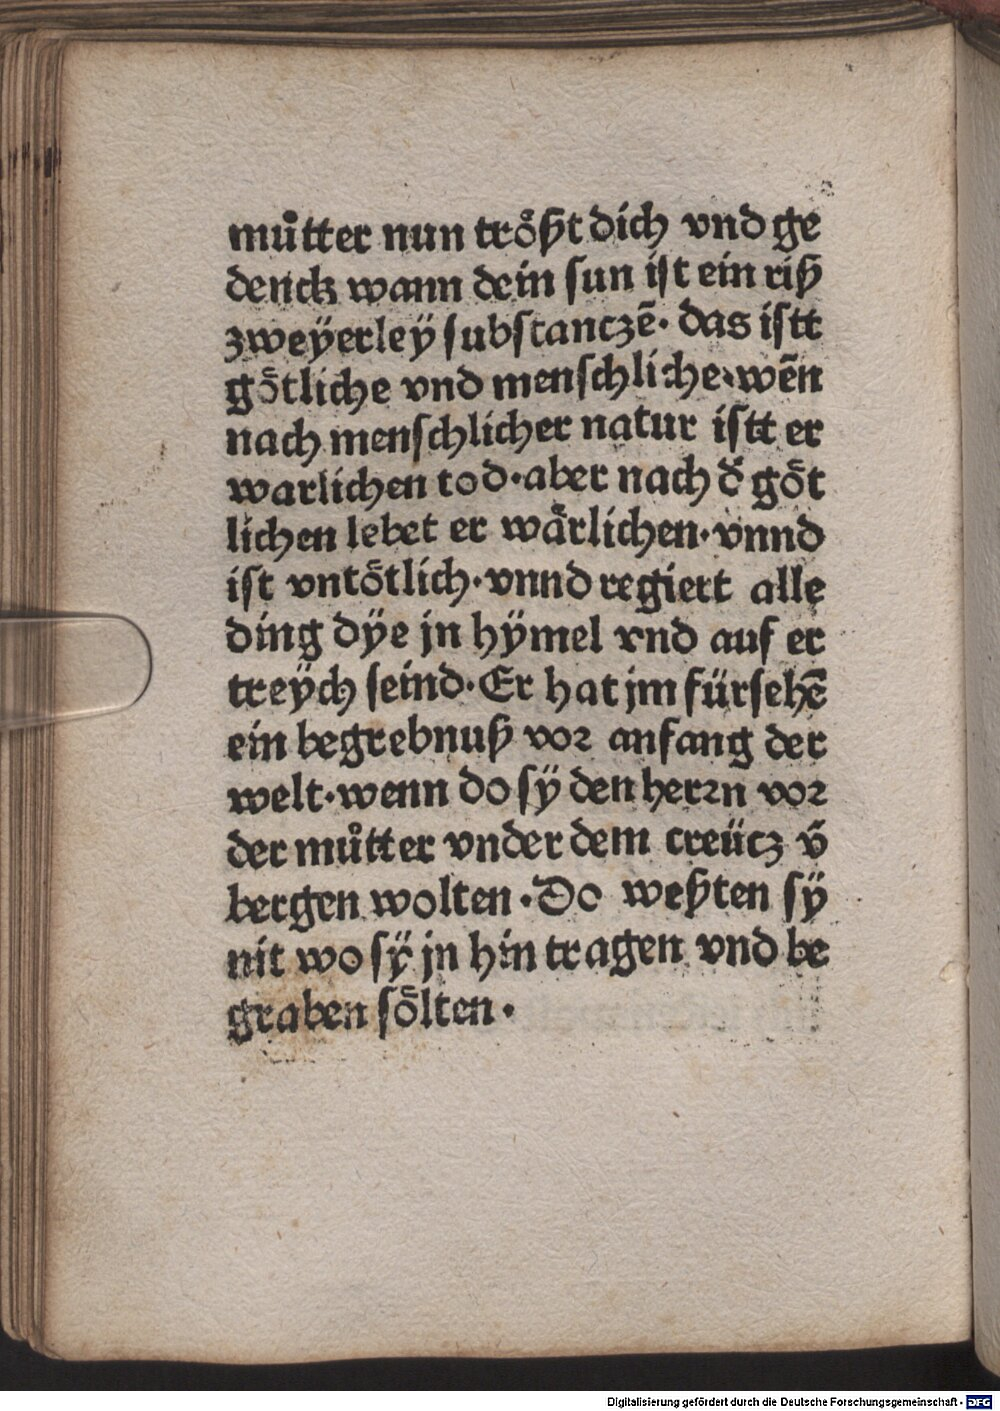 můtter nun trößt dich vnd ge
denck wann dein sun ist ein riß
zweÿerleÿ substanczē. das istt
götliche vnd menschliche. wēn
nach menschlicher natur istt er
warlichen tod. aber nach d̕ göt
lichen lebet er wärlichen. vnnd
ist vntötlich. vnnd regiert alle
ding dÿe jn hÿmel vnd auf er
treÿch seind. Er hat jm fürsehē
ein begrebnuß vor anfang der
welt. wenn do sÿ den herrn vor
der můtter vnder dem creücz v̄
bergen wolten. Do weßten sÿ
nit wo sÿ jn hin tragen vnd be
graben sölten.
Digitalisierung gefördert durch die Deutsche Forschungsgemeinschaft - DFG